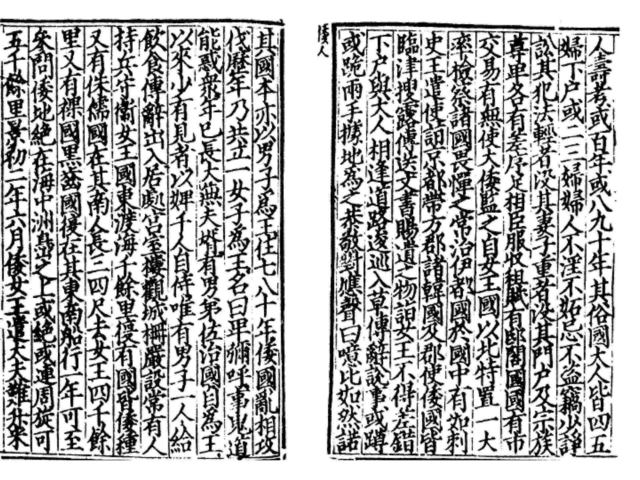 人壽考或百年或八九十年其俗國大人皆四五
婦下户或二三婦婦人不淫不妬忌不盗竊少諍
訟其犯法輕者没其妻子重者没其門户及宗族
尊卑各有差序足相臣服收租賦有邸閣國國有市
交易有無使大倭監之自女王國以北特置一大
率檢察諸國畏憚之常治伊都國於國中有如刺
史王遣使詣京都帶方郡諸韓國及郡使倭國皆
臨津搜露傳送文書賜遺之物詣女王不得差錯
下户與大人相逢道路逡巡入草傳辭說事或蹲
或跪兩手據地爲之恭敬對應聲曰噫比如然諾
倭人
其國本亦以男子爲王住七八十年倭國亂相攻
伐歷年乃共立一女子爲王名曰卑彌呼事鬼道
能惑衆年已長大無夫壻有男弟佐治國自爲王
以來少有見者以婢千人自侍唯有男子一人給
飲食傳辭出入居處宮室樓觀城柵嚴設常有人
持兵守衞女王國東渡海千餘里復有國皆倭種
又有侏儒國在其南人長三四尺去女王四千餘
里又有裸國黑齒國復在其東南船行一年可至
參問倭地絶在海中洲島之上或絶或連周旋可
五千餘里景初二年六月倭女王遣大夫難升米